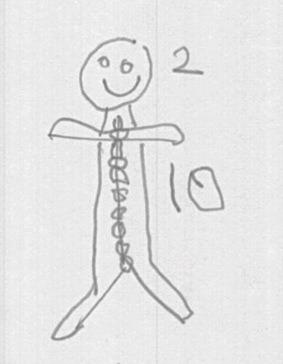 2
10